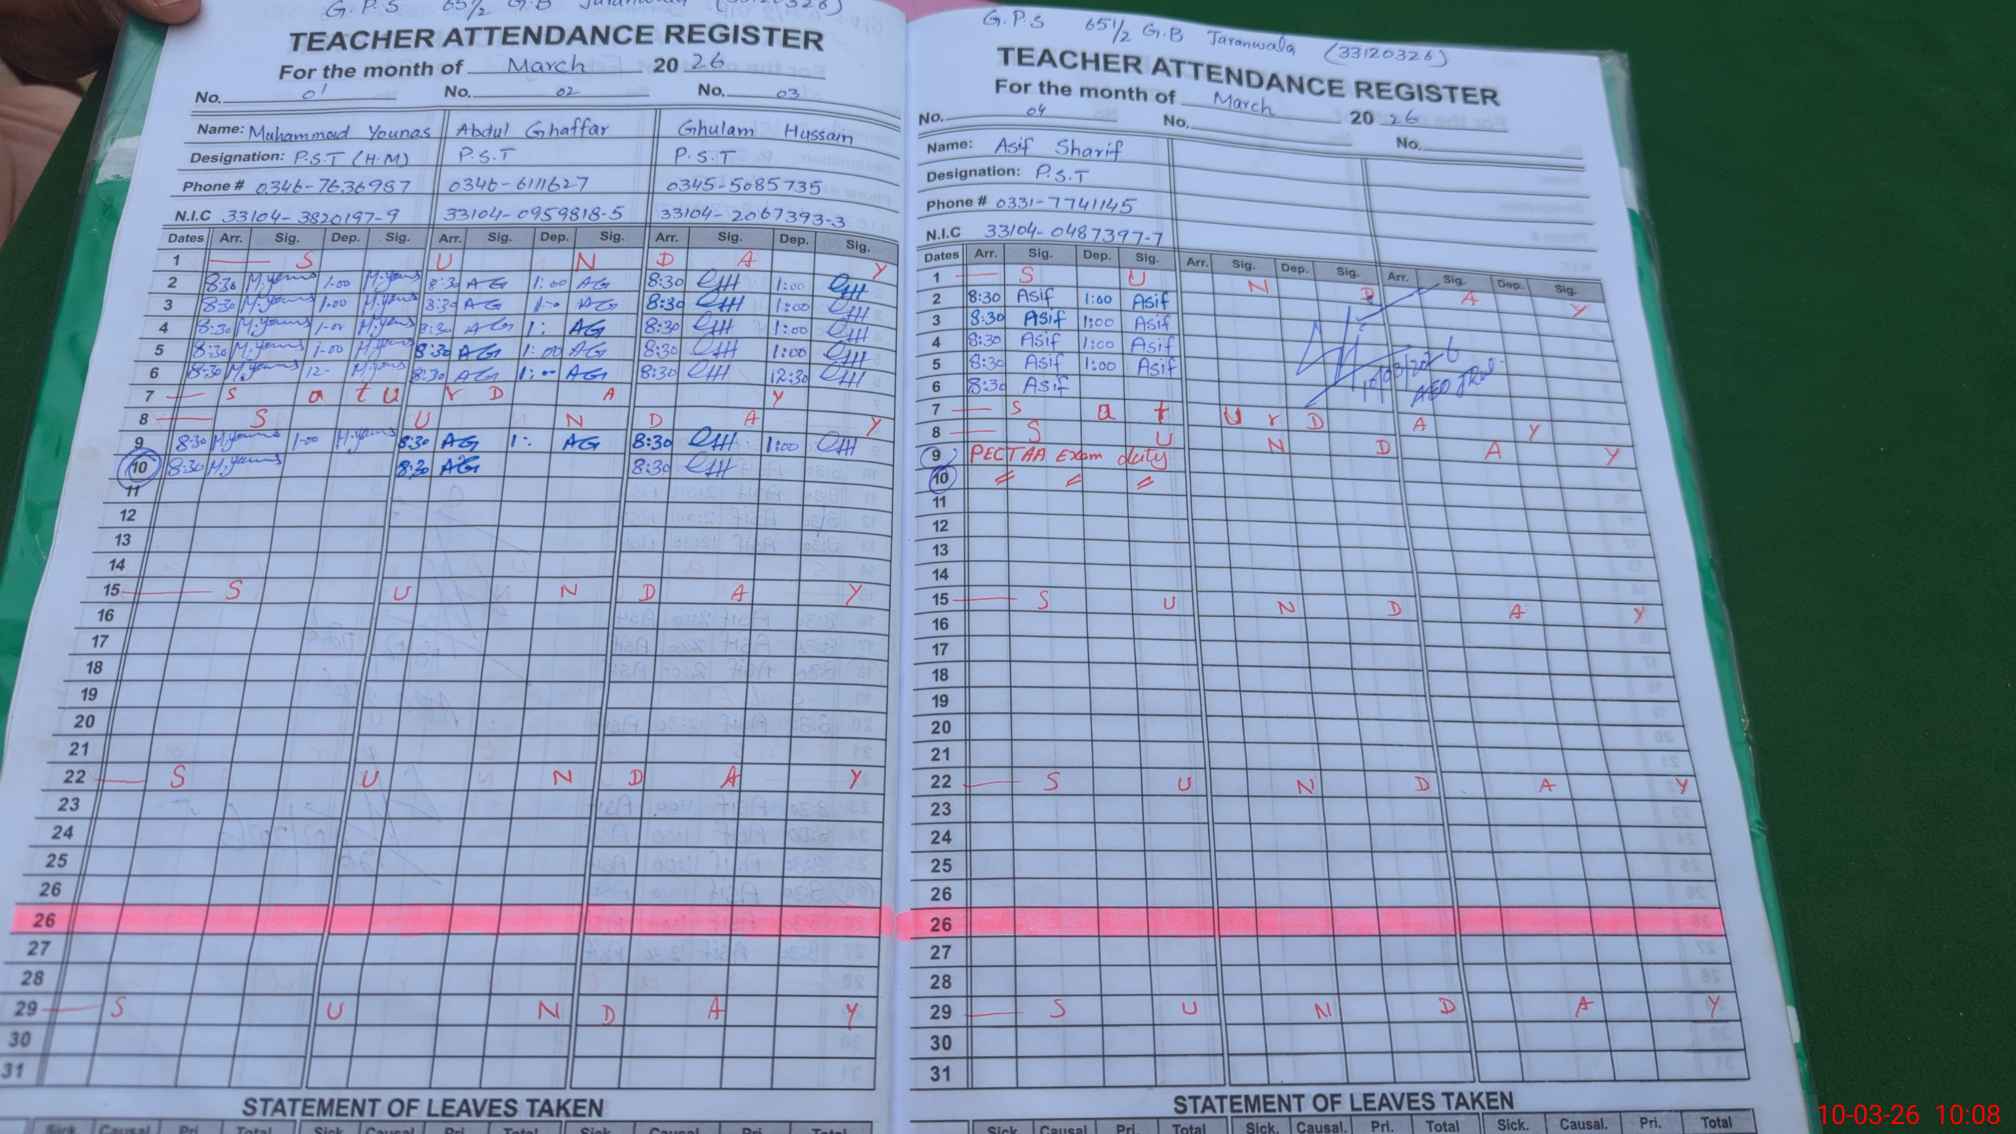 G.P.S 65 1/2 G.B Jaranwala (33120326)
TEACHER ATTENDANCE REGISTER
For the month of March 20 26
No. 01 No. 02 No. 03
Name: Muhammad Younas Abdul Ghaffar Ghulam Hussain
Designation: P.S.T (H.M) P.S.T P.S.T
Phone # 0346-7636987 0346-6111627 0345-5085735
N.I.C 33104-3820197-9 33104-0959818-5 33104-2067393-3
Dates Arr. Sig. Dep. Sig. Arr. Sig. Dep. Sig. Arr. Sig. Dep. Sig.
1 S U N D A Y
2 8:30 M.younus 1:00 M.younus 8:30 AG 1:00 AG 8:30 GH 1:00 GH
3 8:30 M.younus 1:00 M.younus 8:30 AG AG 8:30 GH 1:00 GH
4 8:30 M.younus M.younus 8:30 AG 1: AG 8:30 GH 1:00 GH
5 8:30 M.younus 1:00 M.younus 8:30 AG 1:00 AG 8:30 GH 1:00 GH
6 8:30 M.younus 12- M.younus 8:30 AG AG 8:30 GH 12:30 GH
7 S a t U r D A Y
8 S U N D A Y
9 8:30 M.younus 1:00 M.younus 8:30 AG 1: AG 8:30 GH 1:00 GH
10 8:30 M.younus 8:30 AG 8:30 GH
11
12
13
14
15 S U N D A Y
16
17
18
19
20
21
22 S U N D A Y
23
24
25
26
26
27
28
29 S U N D A Y
30
31
STATEMENT OF LEAVES TAKEN
Sick Causal Pri. Total Sick. Causal. Pri. Total Sick. Causal. Pri. Total
G.P.S 65 1/2 G.B Jaranwala (33120326)
TEACHER ATTENDANCE REGISTER
For the month of March 20 26
No. 04 No. No.
Name: Asif Sharif
Designation: P.S.T
Phone # 0331-7741145
N.I.C 33104-0487397-7
Dates Arr. Sig. Dep. Sig. Arr. Sig. Dep. Sig. Arr. Sig. Dep. Sig.
1 S U N D A Y
2 8:30 Asif 1:00 Asif
3 8:30 Asif 1:00 Asif
4 8:30 Asif 1:00 Asif
5 8:30 Asif 1:00 Asif
6 8:30 Asif
10/03/2026
AEO
7 S a t U r D A Y
8 S U N D A Y
9 PECTAA Exam duty
10 〃 〃 〃
11
12
13
14
15 S U N D A Y
16
17
18
19
20
21
22 S U N D A Y
23
24
25
26
26
27
28
29 S U N D A Y
30
31
STATEMENT OF LEAVES TAKEN
Sick Causal Pri. Total Sick. Causal. Pri. Total Sick. Causal. Pri. Total
10-03-26 10:08